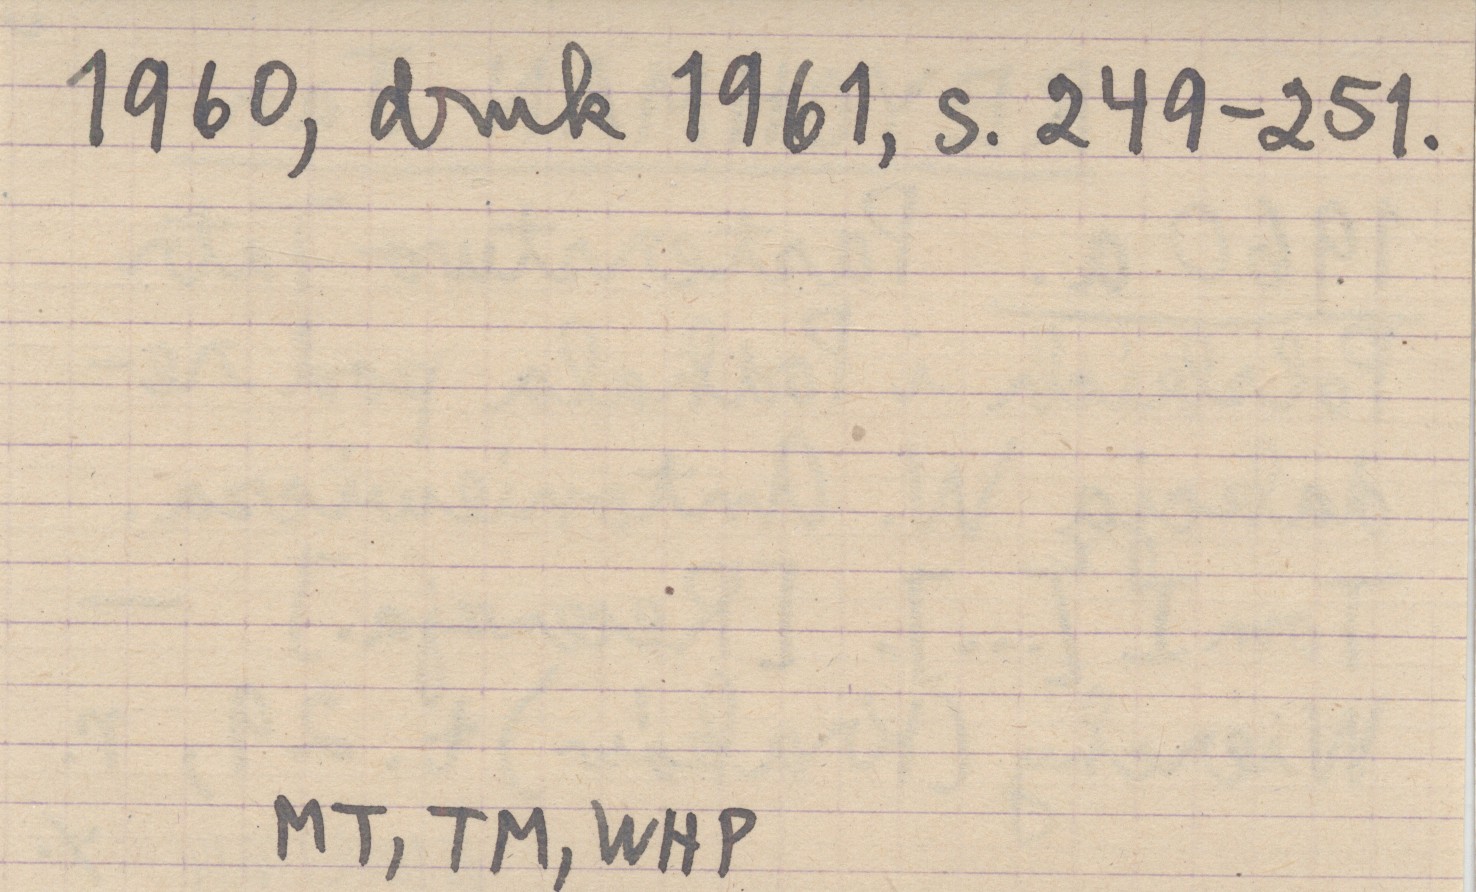 1960, druk 1961, s. 249-251.
MT, TM, WHP